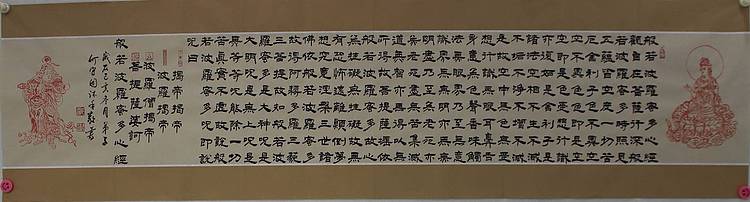 般若波羅蜜多心經
觀自在菩薩行深般
若波羅蜜多時照見
五蘊皆空度一切苦
厄舍利子色不異空
空不異色色即是空
空即是色受想行識
亦復如是舍利子是
諸法空相不生不滅
不垢不淨不增不減
是故空中無色無受
想行識無眼耳鼻舌
身意無色聲香味觸
法無眼界乃至無意
識界無無明亦無無
明盡乃至無老死亦
無老死盡無苦集滅
道無智亦無得以無
所得故菩提薩埵依
般若波羅蜜多故心
無罣礙無罣礙故無
有恐怖遠離顛倒夢
想究竟涅槃三世諸
佛依般若波羅蜜多
故得阿耨多羅三藐
三菩提故知般若波
羅蜜多是大神咒是
大明咒是無上咒是
無等等咒能除一切
苦真實不虛故說般
若波羅蜜多咒即說
咒曰
揭帝揭帝
波羅揭帝
波羅僧揭帝
菩提薩婆訶
般若波羅蜜多心經
亥冬月弟子